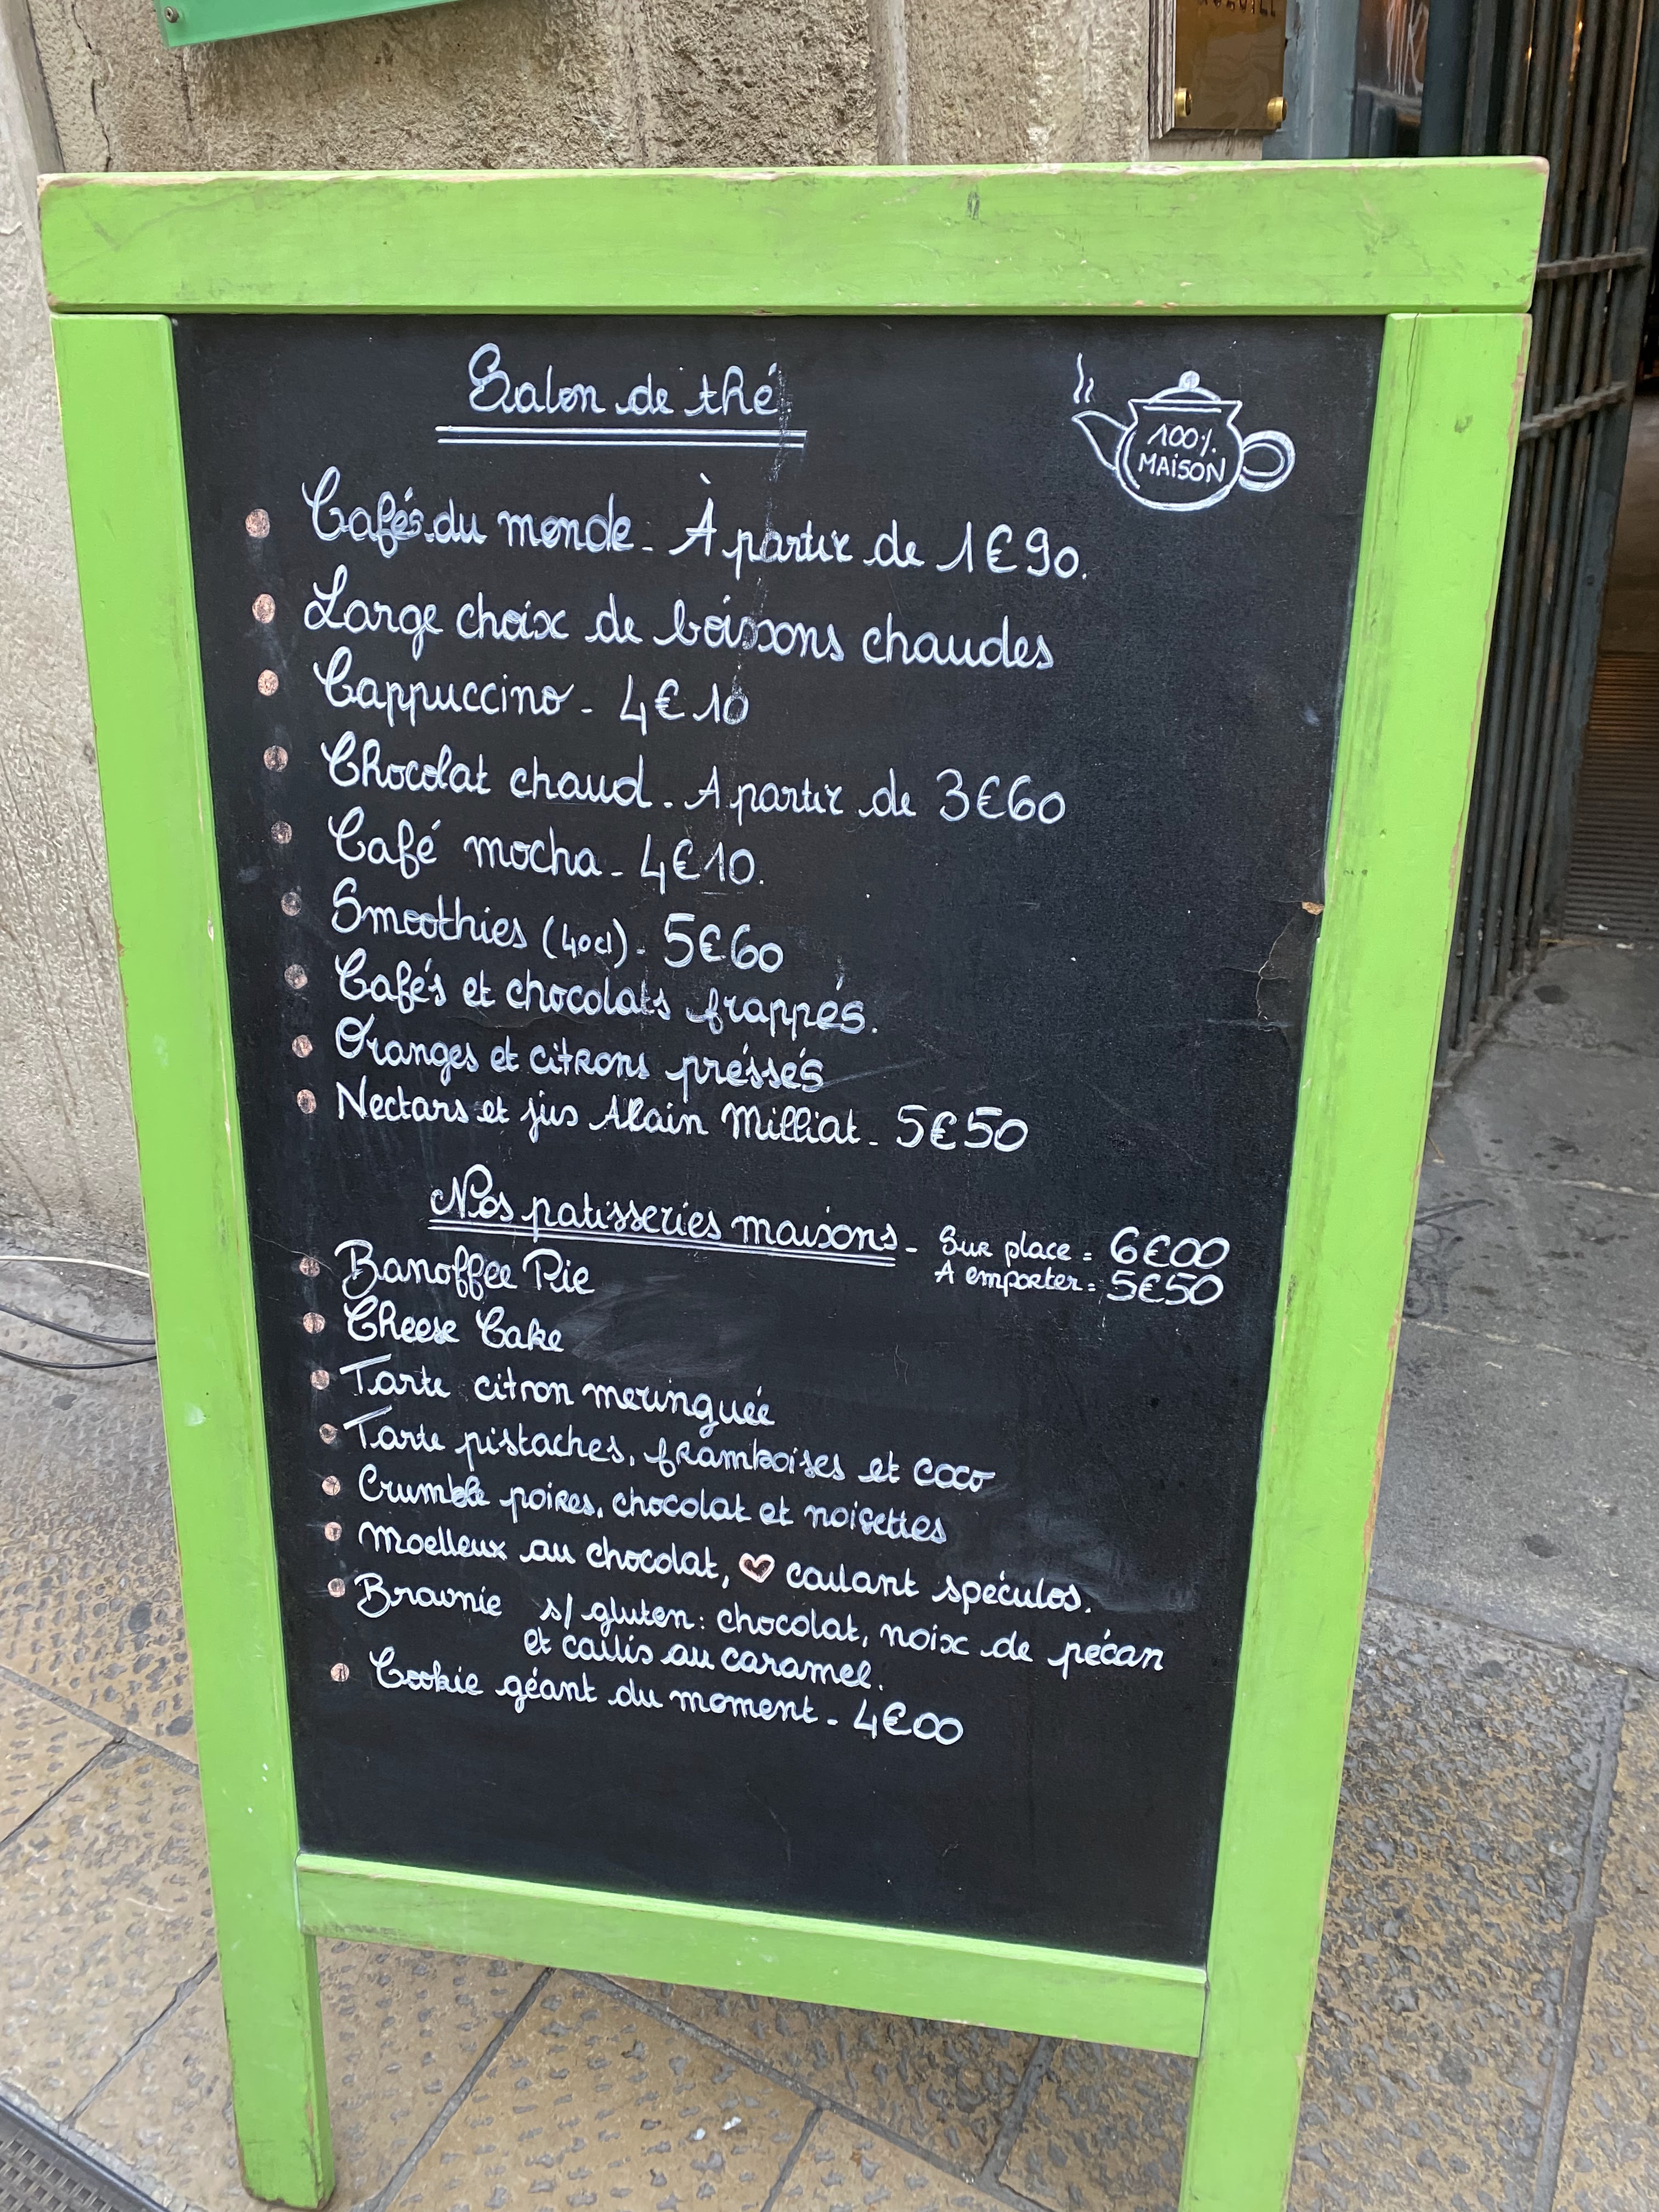 Salon de thé
100%
MAISON
Cafés du monde - À partir de 1€90.
Large choix de boissons chaudes
Cappuccino - 4€10
Chocolat chaud - A partir de 3€60
Café mocha - 4€10.
Smoothies (40cl) - 5€60
Cafés et chocolats frappés.
Oranges et citrons préssés
Nectars et jus Alain Milliat - 5€50
Nos patisseries maisons - Sur place = 6€00
A emporter = 5€50
Banoffee Pie
Cheese Cake
Tarte citron meringuée
Tarte pistaches, framboises et coco
Crumble poires, chocolat et noisettes
Moelleux au chocolat, ♡ coulant spéculos.
Brownie s/ gluten : chocolat, noix de pécan
et coulis au caramel.
Cookie géant du moment - 4€00